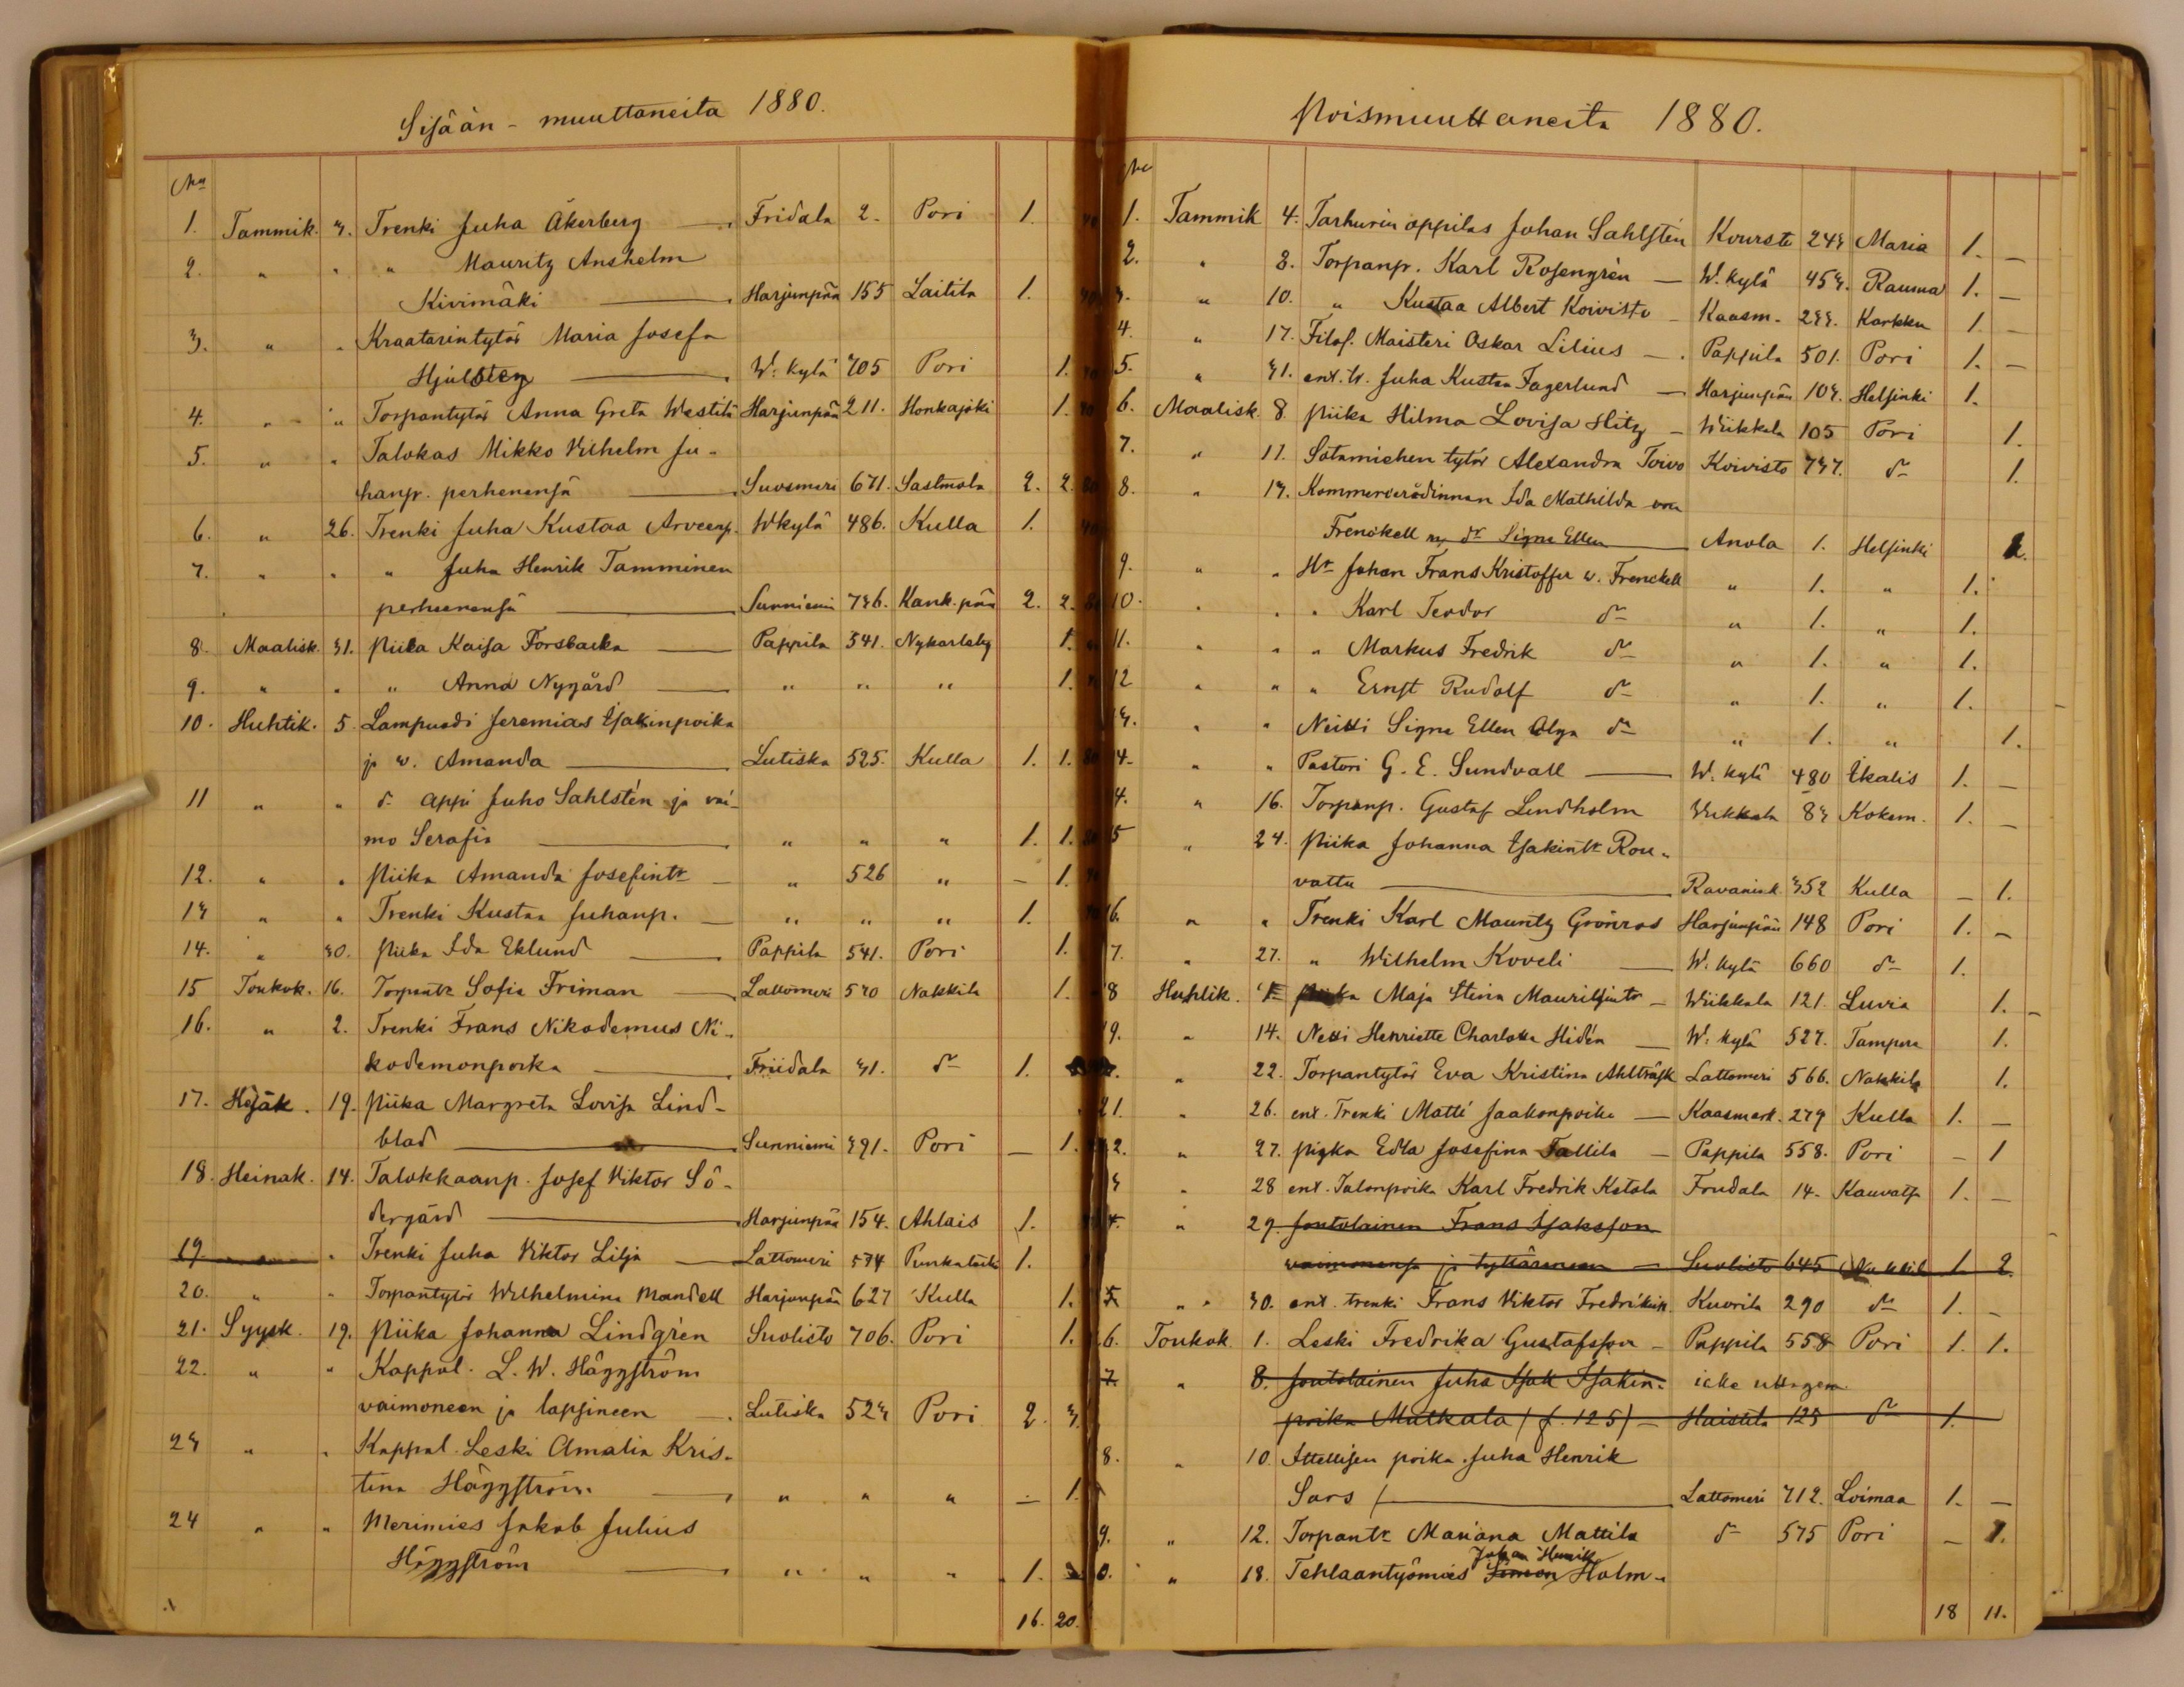 Sisään-muuttaneita 1880.
No
1. Tammik. 3. Trenki Juha Åkerberg Fridala 2. Pori 1.
2. " " " Mauritz Anshelm
Kivimäki Harjunpää 155 Laitila 1.
3. " " Kraatarintytär Maria Josefa
W. kylä 705 Pori 1.
4. " " Torpantytär Anna Greta Westilä Harjunpää 211. Honkajoki 1.
5. " " Talokas Mikko Vilhelm Ju-
hanp. perhenensä Suosmeri 671. Sastmola 2. 2.
6. " 26. Trenki Juha Kustaa Arveenp. W kylä 486. Kulla 1.
7. " " " Juha Henrik Tamminen
perheenensä Sunniemi 736. Kank.pää 2. 2.
8. Maalisk. 31. Piika Kaisa Forsbacka Pappila 541. Nykarleby 1.
9. " " " Anna Nygård " " " 1.
10. Huhtik. 5. Lampuodi Jeremias Isakinpoika
ja w. Amanda Lutiska 525. Kulla 1. 1.
11 " " d:o appi Juho Sahlstén ja vai-
mo Serafia " " " 1. 1.
12. " " Piika Amanda Josefintr " 526 " — 1.
13 " " Trenki Kustaa Juhanp. " " " 1.
14. " 30. Piika Ida Eklund Pappila 541. Pori 1.
15 Toukok. 16. Torpantr Sofia Friman Lattomeri 570 Nakkila 1.
16. " 2. Trenki Frans Nikodemus Ni-
kodemonpoika Friidala 31. d:o 1.
17. Kesäk. 19. Piika Margreta Lovisa Lind-
blad Sunniemi 391. Pori — 1.
18. Heinak. 14. Talokkaanp. Josef Viktor Sö-
dergård Harjunpää 154. Ahlais 1.
19 " Trenki Juha Viktor Lilja Lattomeri 574 1.
20. " " Torpantytär Wilhelmina Mandell Harjunpää 627 Kulla 1.
21. Syysk. 19. Piika Johanna Lindgrén Suolisto 706. Pori 1.
22. " " Kappal. L. W. Häggström
vaimoneen ja lapsineen Lutiska 523 Pori 2. 3.
23 " " Kappal. Leski Amalia Kris-
tina Häggström " " " — 1.
24 " " Merimies Jakob Julius
Häggström " " " 1.
16. 20.
Poismuuttaneita 1880.
No
1. Tammik 4. Tarhurin oppilas Johan Sahlstén Kourste 243 Maria 1. —
2. " 8. Torpanp. Karl Rosengrén W. kylä 453. Rauma 1. —
3. " 10. " Kustaa Albert Koivisto Kaasm. 233. Karkku 1. —
4. " 17. Filos. Maisteri Oskar Lilius Pappila 501. Pori 1. —
5. " 31. ent. tr. Juha Kustaa Fagerlund Harjunpää 103. Helsinki 1.
6. Maalisk. 8. Piika Hilma Lovisa Hitz Wiikkala 105 Pori 1.
7. " 11. Sotamiehen tytär Alexandra Toivo Koivisto 737. d:o 1.
8. " 13. Kommerserådinnan Ida Mathilda von
Frenckell Anola 1. Helsinki
9. " " Hr Johan Frans Kristoffer v. Frenckell " 1. " 1.
10. " " " Karl Teodor d:o " 1. " 1.
11. " " " Markus Fredrik d:o " 1. " 1.
12 " " " Ernst Rudolf d:o " 1. " 1.
13. " " Neitti Signe Ellen Olga d:o " 1. " 1.
4. " " Pastori G. E. Sundvall W. kylä 480 Ikalis 1. —
4. " 16. Torpanp. Gustaf Lindholm Wiikkala 83 Kokem. 1. —
5 " 24. Piika Johanna Isakintr Rou-
vattu Ravanink 352 Kulla — 1.
6. " " Trenki Karl Mauritz Grönroos Harjunpää 148 Pori 1. —
7. " 27. " Wilhelm Koveli W. kylä 660 d:o 1.
8 Huhtik. Maja Stina Wiikkala 121. Luvia 1.
9. " 14. Neiti Henriette Charlotta Hidén W. kylä 527. Tampere 1.
" 22. Torpantytär Eva Kristina Ahlträsk Lattomeri 566. Nakkila 1.
21. " 26. ent. Trenki Matti Jaakonpoika Kaasmark. 279 Kulla 1. —
2. " 27. Piika Edla Josefina Tallila Pappila 558. Pori — 1
3 " 28 ent. Talonpoika Karl Fredrik Ketola Friidala 14. Kauvatsa 1. —
4. " 29. Joutolainen Frans Isaksson
vaimonensa ja tyttärineen Suolisto 645 Nakkila 1 2.
5. " " 30. ent. trenki Frans Viktor Fredrikinp. Kuorila 290 d:o 1. —
6. Toukok. 1. Leski Fredrika Gustafsson Pappila 558 Pori 1. 1.
7. " 8. Joutolainen Juha Isak Isakin- icke uttagen
poika Matkala (f. 125) Haistila 125 d:o 1.
8. " 10. Itellisen poika Juha Henrik
Sars Lattomeri 712. Loimaa 1. —
9. " 12. Torpantr Mariana Mattila d:o 575 Pori — 1.
Johan Henrik
0. " 18. Tehtaantyömies Simon Holm-
18 11.